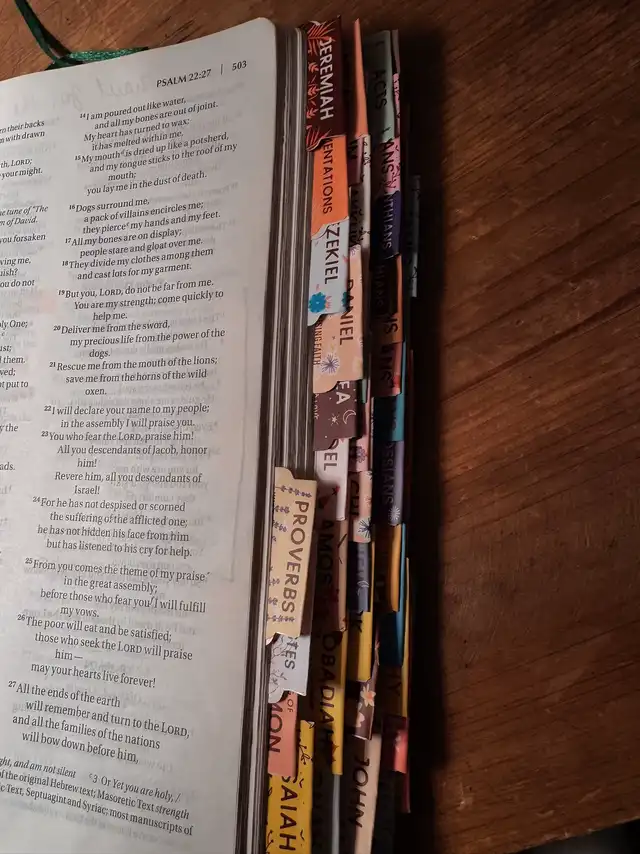 PSALM 22:27 | 503
n their backs
m with drawn
th, LORD;
your might.
he tune of "The
m of David.
you forsaken
ving me,
uish?
ou do not
oly One;
ust;
d them.
ved;
ot put to
y the
ads.
14 I am poured out like water,
and all my bones are out of joint.
My heart has turned to wax;
it has melted within me.
15 My mouth is dried up like a potsherd,
and my tongue sticks to the roof of my
mouth;
you lay me in the dust of death.
16 Dogs surround me,
a pack of villains encircles me;
they pierce my hands and my feet.
17 All my bones are on display;
people stare and gloat over me.
18 They divide my clothes among them
and cast lots for my garment.
19 But you, LORD, do not be far from me.
You are my strength; come quickly to
help me.
20 Deliver me from the sword,
my precious life from the power of the
dogs.
21 Rescue me from the mouth of the lions;
save me from the horns of the wild
oxen.
22 I will declare your name to my people;
in the assembly I will praise you.
23 You who fear the LORD, praise him!
All you descendants of Jacob, honor
him!
Revere him, all you descendants of
Israel!
24 For he has not despised or scorned
the suffering of the afflicted one;
he has not hidden his face from him
but has listened to his cry for help.
25 From you comes the theme of my praise
in the great assembly;
before those who fear you f I will fulfill
my vows.
26 The poor will eat and be satisfied;
those who seek the LORD will praise
him—
may your hearts live forever!
27 All the ends of the earth
will remember and turn to the LORD,
and all the families of the nations
will bow down before him,
ght, and am not silent c3 Or Yet you are holy, /
of the original Hebrew text; Masoretic Text strength
c Text, Septuagint and Syriac; most manuscripts of
JEREMIAH
ENTATIONS
ZEKIEL
DANIEL
EA
EL
AMOS
OBADIAH
PROVERBS
TES
OF
MON
SAIAH
ACTS
ANS
THIANS
ESIANS
JOHN